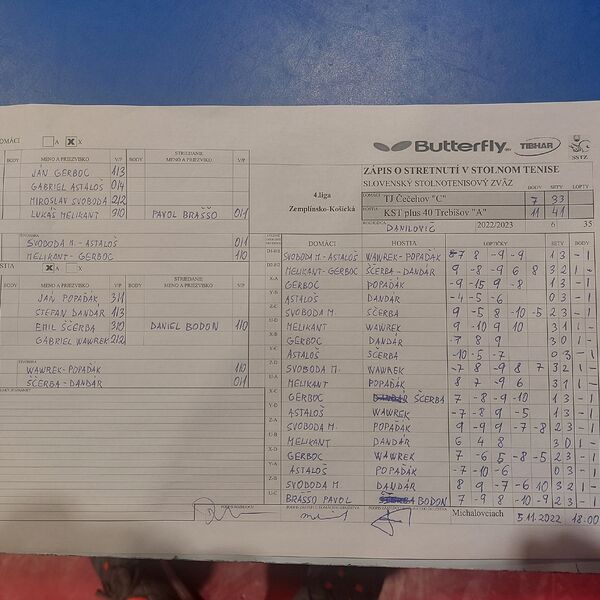 Butterfly TIBHAR SSTZ
DOMÁCI A X
BODY MENO A PRIEZVISKO V/P BODY STRIEDANIE MENO A PRIEZVISKO V/P
JÁN GERBOC 1/3
GABRIEL ASTALOŠ 0/4
MIROSLAV SVOBODA 2/2
LUKÁŠ MELIKANT 3/0 PAVOL BRAŠŠO 0/1
ŠTVORHRA
SVOBODA M. - ASTALOŠ 0/1
MELIKANT - GERBOC 1/0
HOSTIA X X
BODY MENO A PRIEZVISKO V/P BODY STRIEDANIE MENO A PRIEZVISKO V/P
JÁN POPAĎÁK 3/1
ŠTEFAN DANDÁR 1/3
EMIL ŠČERBA 3/0 DANIEL BODON 1/0
GABRIEL WAWREK 2/2
WAWREK - POPAĎÁK 1/0
ŠČERBA - DANDÁR 0/1
4.liga
Zemplínsko-Košická
ZÁPIS O STRETNUTÍ V STOLNOM TENISE
SLOVENSKÝ STOLNOTENISOVÝ ZVÄZ BODY SETY LOPTY
TJ Čečehov "C" 7 33
KST plus 40 Trebišov "A" 11 41
DANILOVIČ 2022/2023 6 35
DOMÁCI HOSTIA LOPTIČKY SETY BODY
SVOBODA M - ASTALOŠ WAWREK - POPAĎÁK -7 8 -9 -9 1 3 - 1
MELIKANT - GERBOC ŠČERBA - DANDÁR 9 -8 -9 6 8 3 2 1 -
GERBOC POPAĎÁK -9 -15 9 -8 1 3 - 1
ASTALOŠ DANDÁR -4 -5 -6 0 3 - 1
SVOBODA M. ŠČERBA 9 -5 8 -10 -5 2 3 - 1
MELIKANT WAWREK 9 -10 9 10 3 1 1 -
GERBOC DANDÁR 7 8 9 3 0 1 -
ASTALOŠ ŠČERBA -10 -5 -7 0 3 - 1
SVOBODA M. WAWREK -7 8 -9 8 7 3 2 1 -
MELIKANT POPAĎÁK 8 7 -9 6 3 1 1 -
GERBOC ŠČERBA 7 -8 -9 -10 1 3 - 1
ASTALOŠ WAWREK -7 -8 9 -5 1 3 - 1
SVOBODA M. POPAĎÁK 9 -9 9 -7 -8 2 3 - 1
MELIKANT DANDÁR 6 4 8 3 0 1 -
GERBOC WAWREK 7 -6 5 -8 -5 2 3 - 1
ASTALOŠ POPAĎÁK -7 -10 -6 0 3 - 1
SVOBODA M. DANDÁR 8 9 -7 -6 10 3 2 1 -
BRAŠŠO PAVOL BODON 7 -9 8 -10 -9 2 3 - 1
Michalovciach 5.11.2022 18:00